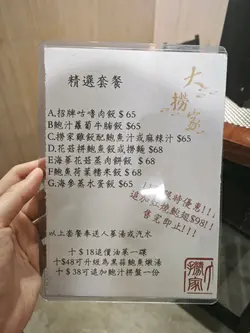 精選套餐
大撈家
A.招牌咕嚕肉飯 $65
B鮑汁蘿蔔牛腩飯 $65
C.撈家雞飯配鮑魚汁或麻辣汁 $65
D.花菇拼鮑魚飯或撈麵 $68
E海參花菇蒸肉餅飯 $68
F鮑魚荷葉糯米飯 $68
G.海參蒸水蛋飯 $65
!!!限時優惠!!!
$98!!
售完即止!!!
以上套餐奉送人蔘湯或汽水
十$18追價油菜一碟
十$48可升級為黑蒜鮑魚燉湯
十$38可追加鮑汁拼盤一份